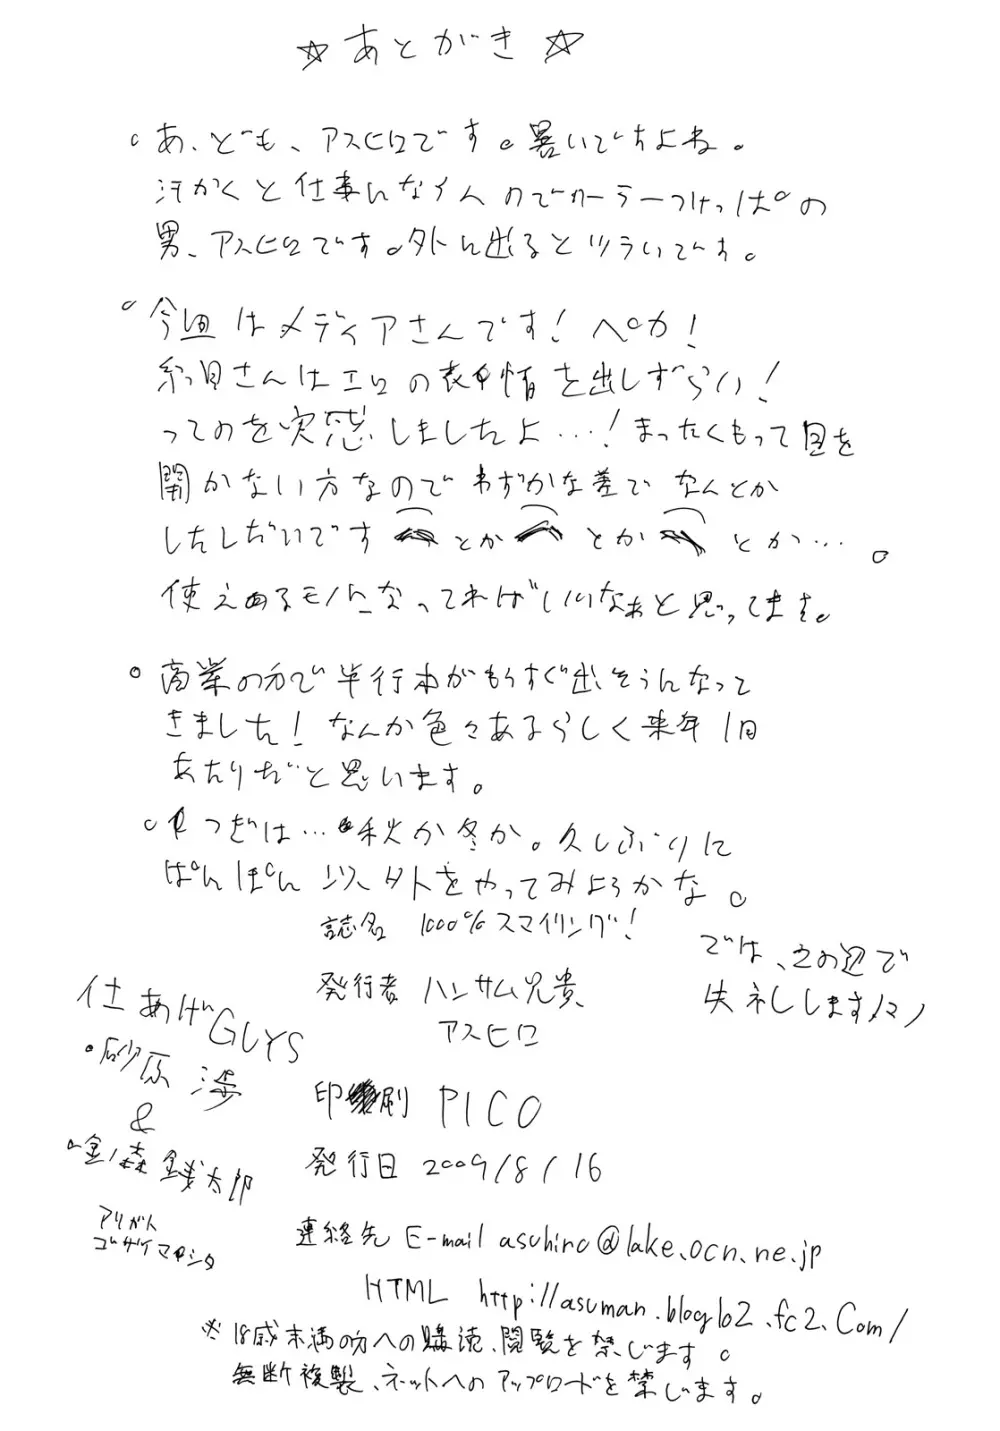 ☆あとがき☆
○あ、ども、アスヒロです。暑いですよね。
汗かくと仕事になんないのでクーラーつけっぱの
男、アスヒロです。外に出るとツライです。
○今回はメディアさんです！ペカ！
糸目さんはエロの表情を出しずらい！
ってのを実感しましたよ…！まったくもって目を
開かない方なのでわずかな差でなんとか
しただいです とか とか とか…。
使えあるモノになってればいいなぁと思ってます。
○商業の方で単行本がもうすぐ出そうんなって
きました！なんか色々あるらしく来年1月
あたりだと思います。
○つぎは…秋か冬か。久しぶりに
ぱんぽん以外をやってみようかな。
誌名 1000%スマイリング！
では、この辺で
失礼します
発行者 ハンサム兄貴、
アスヒロ
仕あげGUYS
・砂原渉
&
・金ノ森銭太郎
アリガト
ゴザイマシタ
印刷 PICO
発行日 2009/8/16
連絡先 E-mail asuhiro@lake.ocn.ne.jp
HTML http://asuman.blog102.fc2.com/
※18歳未満の方への購読、閲覧を禁じます。
無断複製、ネットへのアップロードを禁じます。